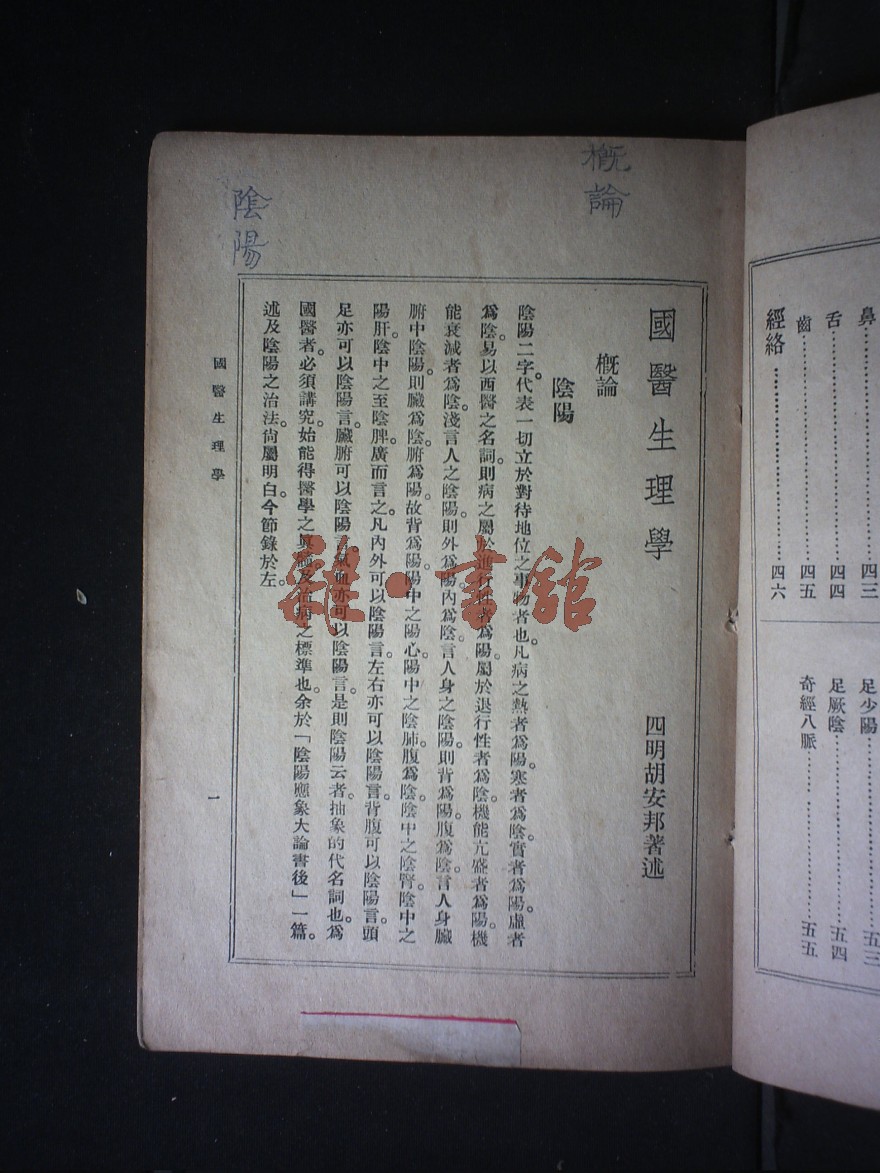 概論
陰陽
國醫生理學
四明胡安邦著述
概論
陰陽
陰陽二字。代表一切立於對待地位之事物者也。凡病之熱者爲陽。寒者爲陰。實者爲陽。虛者
爲陰。易以西醫之名詞。則病之屬於進行性者爲陽。屬於退行性者爲陰。機能亢盛者爲陽。機
能衰減者爲陰。淺言人之陰陽。則外爲陽。內爲陰。言人身之陰陽。則背爲陽。腹爲陰。言人身臟
腑中陰陽。則臟爲陰。腑爲陽。故背爲陽。陽中之陽心。陽中之陰肺。腹爲陰。陰中之陰腎。陰中之
陽肝。陰中之至陰脾。廣而言之。凡內外可以陰陽言。左右亦可以陰陽言。背腹可以陰陽言。頭
足亦可以陰陽言。臟腑可以陰陽言。氣血亦可以陰陽言。是則陰陽云者。抽象的代名詞也。爲
國醫者。必須講究。始能得醫學之眞髓。及治病之標準也。余於「陰陽應象大論書後」一篇。
述及陰陽之治法。尙屬明白。今節錄於左。
國醫生理學
一
鼻 四三
舌 四四
齒 四五
經絡 四六
足少陽 五三
足厥陰 五四
奇經八脈 五五
雜·書館